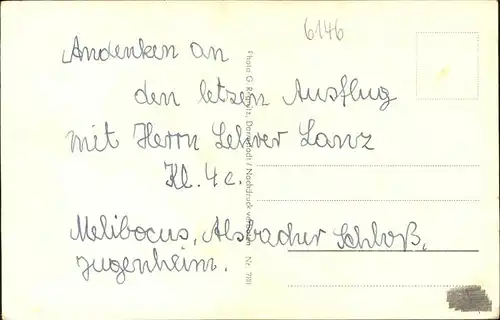 6146
Andenken an
den letzen Ausflug
mit Herrn Lehrer Lanz
Kl. 4c.
Melibocus, Alsbacher Schloß,
Jugenheim.
Photo G. Darmstadt / Nachdruck verboten Nr. 7181